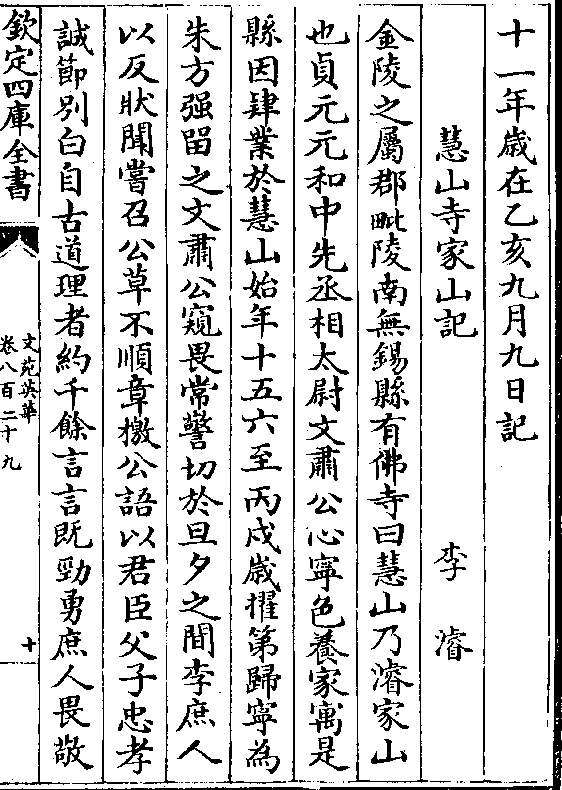 十一年歳在乙亥九月九日記
慧山寺家山記 李濬
金陵之屬郡毗陵南無錫縣有佛寺曰慧山乃濬家山
也貞元元和中先丞相太尉文肅公心寧色養家寓是
縣因肄業於慧山始年十五六至丙戍歳擢第歸寧為
朱方强留之文肅公窺畏常警切於旦夕之間李庶人
以反狀聞嘗召公草不順章檄公語以君臣父子忠孝
誠節別白自古道理者約千餘言言既勁勇庶人畏敬
欽定四庫全書
文苑英華
卷八百二十九
十